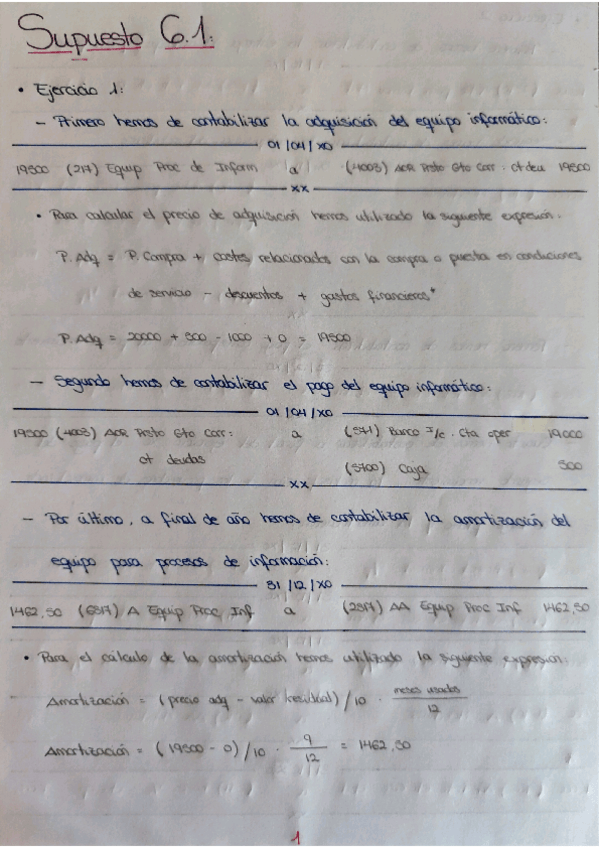 Supuesto 6.1:
• Ejercicio 1:
- Primero hemos de contabilizar la adquisición del equipo informático:
01/04/X0
19500 (217) Equip Proc de Inform a (4003) ACR Prsto Gto Corr. ct deu 19500
XX
• Para calcular el precio de adquisición hemos utilizado la siguiente expresión.
P. Adq = P. Compra + costes relacionados con la compra o puesta en condiciones
de servicio - descuentos + gastos financieros*
P. Adq = 20000 + 500 - 1000 + 0 = 19500
- Segundo hemos de contabilizar el pago del equipo informático:
01/04/X0
19500 (4003) ACR Prsto Gto Corr: a (571) Banco I/c. Cta oper 19000
ct deudas
(5700) Caja 500
XX
- Por último, a final de año hemos de contabilizar la amortización del
equipo para procesos de información:
31/12/X0
1462,50 (6817) A Equip Proc Inf a (2817) AA Equip Proc Inf 1462,50
• Para el cálculo de la amortización hemos utilizado la siguiente expresión:
Amortización = (precio adq - valor residual)/10 · meses usados / 12
Amortización = (19500 - 0)/10 · 9 / 12 = 1462,50
1